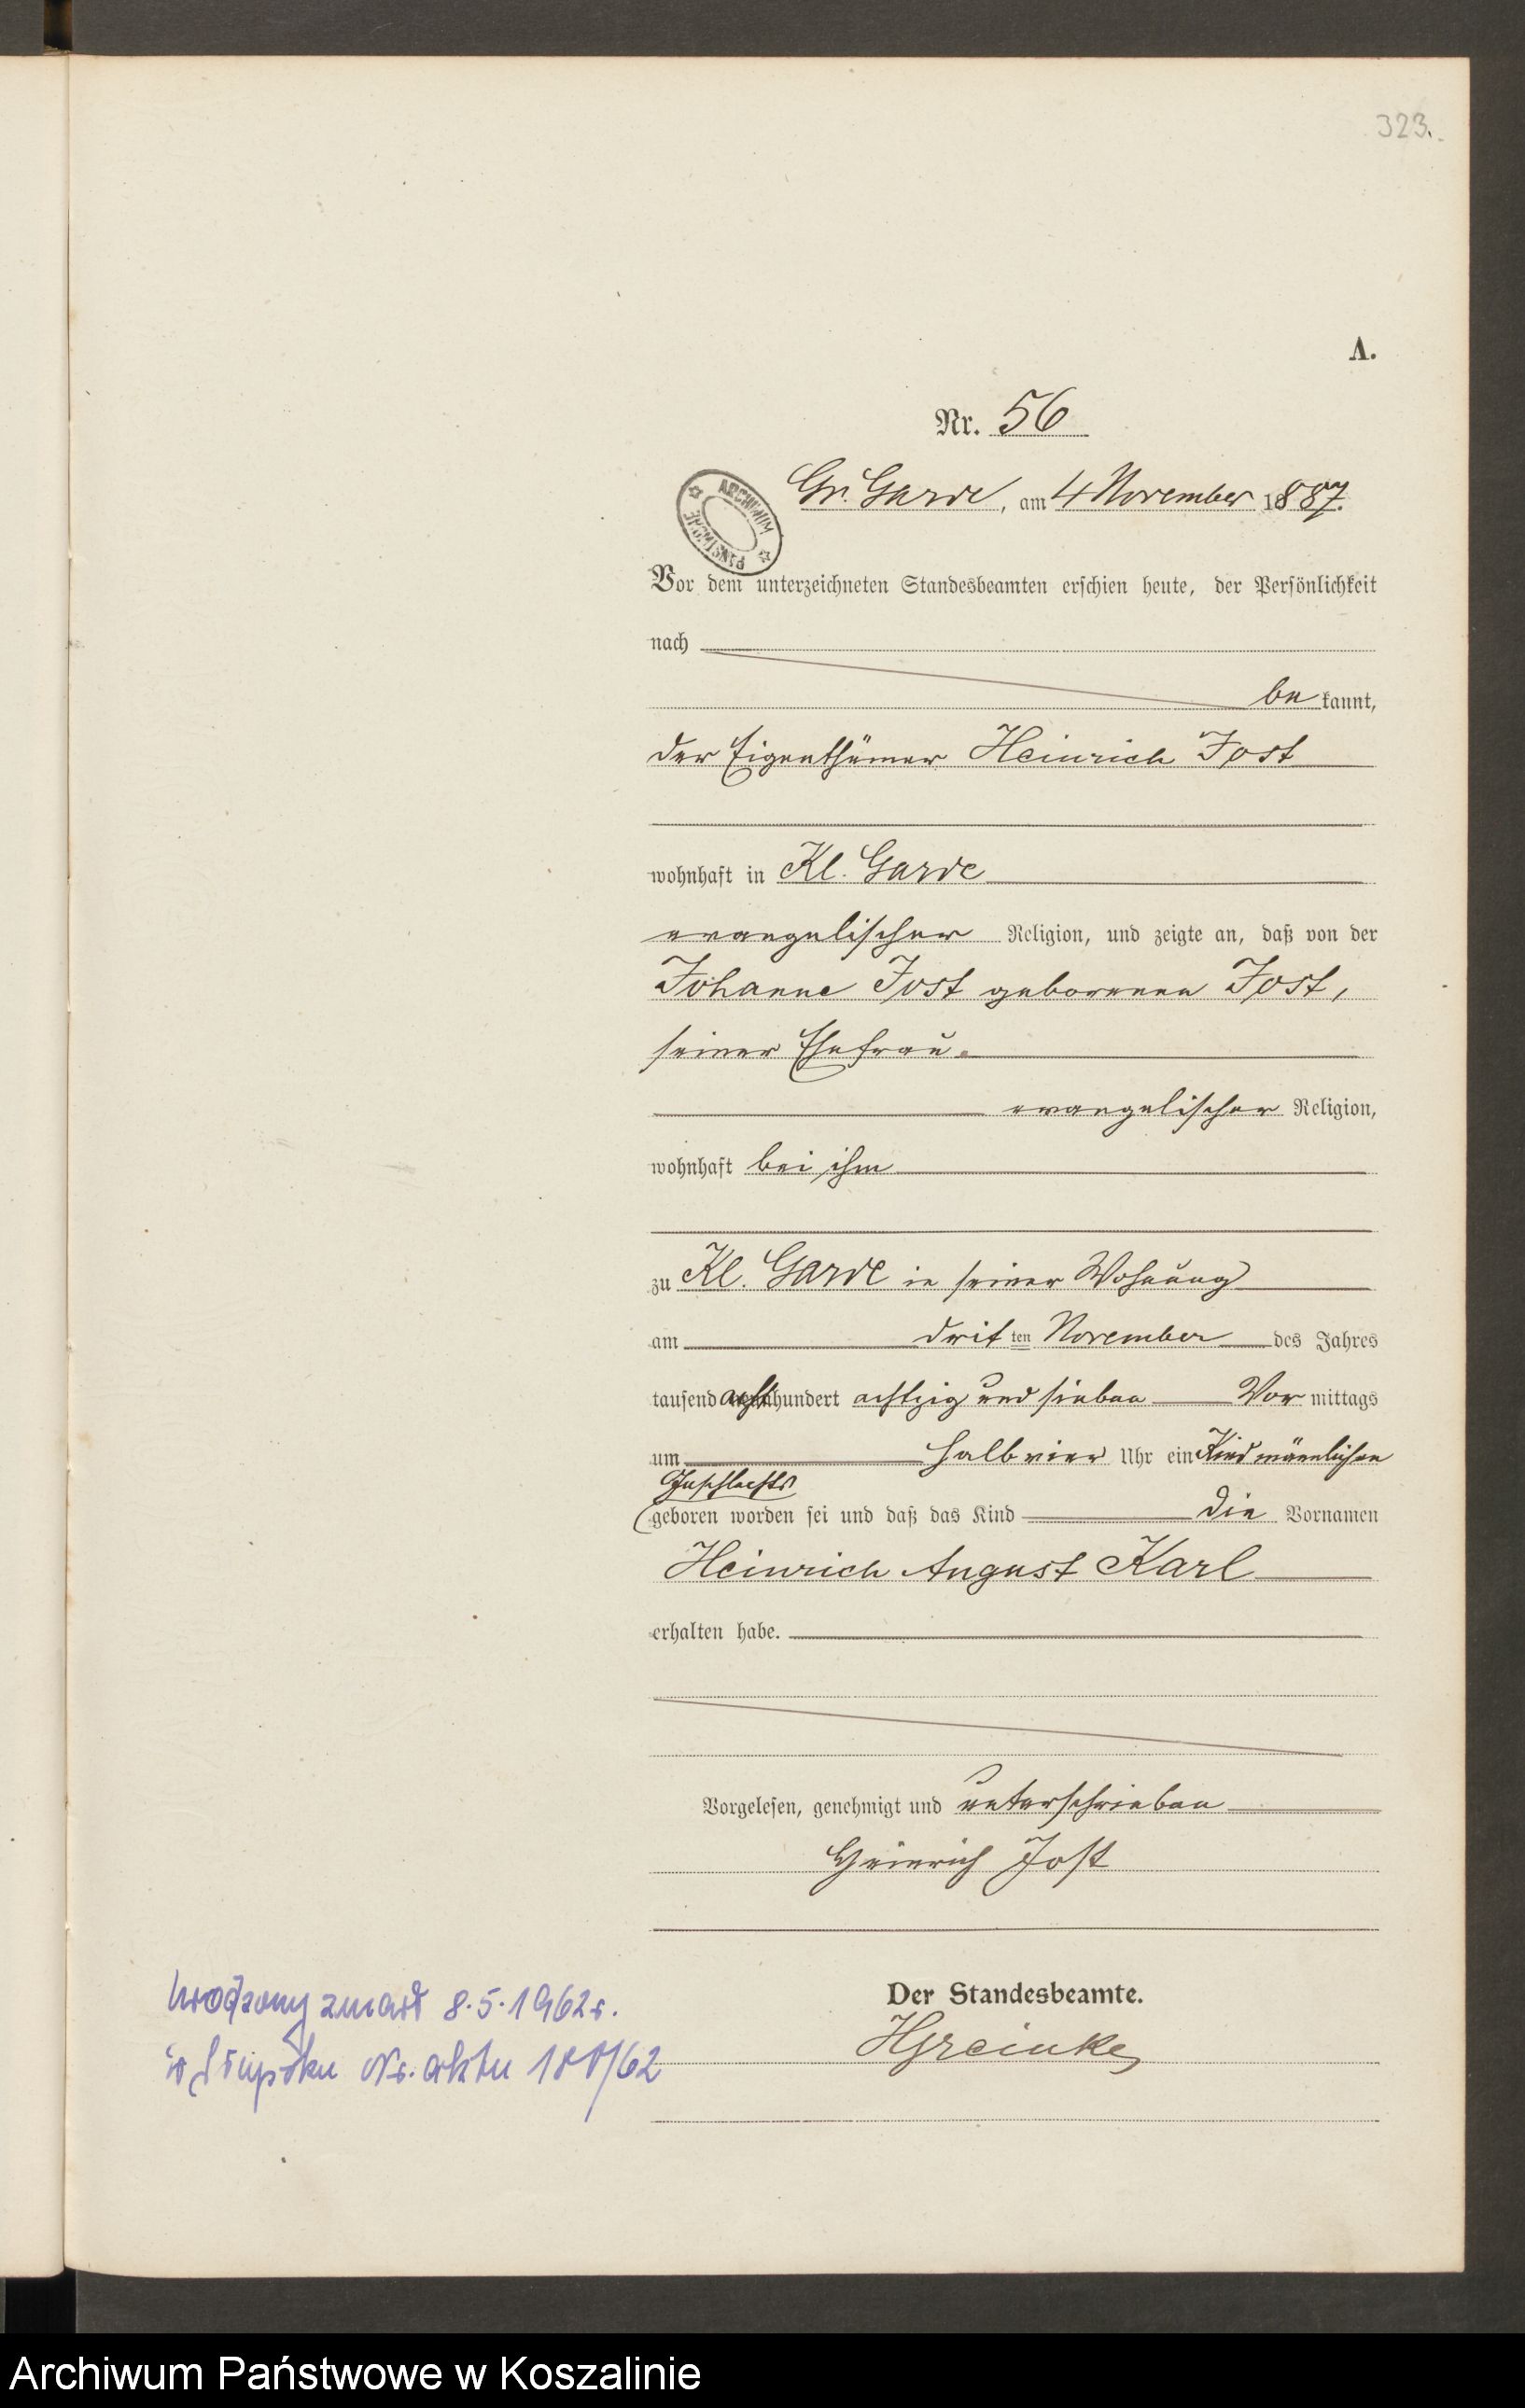 323.
A.
Nr. 56
ARCHIWUM PAŃSTWOWE
Gr. Garde, am 4 November 1887.
Vor dem unterzeichneten Standesbeamten erschien heute, der Persönlichkeit
nach
be kannt,
der Eigenthümer Heinrich Jost
wohnhaft in Kl. Garde
evangelischer Religion, und zeigte an, daß von der
Johanne Jost geborenen Jost,
seiner Ehefrau
evangelischer Religion,
wohnhaft bei ihm
zu Kl. Garde in seiner Wohnung
am drit ten November des Jahres
tausend acht hundert achtzig und sieben Vor mittags
um halb vier Uhr ein Kind männlichen
Geschlechts
geboren worden sei und daß das Kind die Vornamen
Heinrich August Karl
erhalten habe.
Vorgelesen, genehmigt und unterschrieben
Heinrich Jost
Der Standesbeamte.
urodzony zmarł 8.5.1962r.
w Słupsku Nr. aktu /62
Archiwum Państwowe w Koszalinie